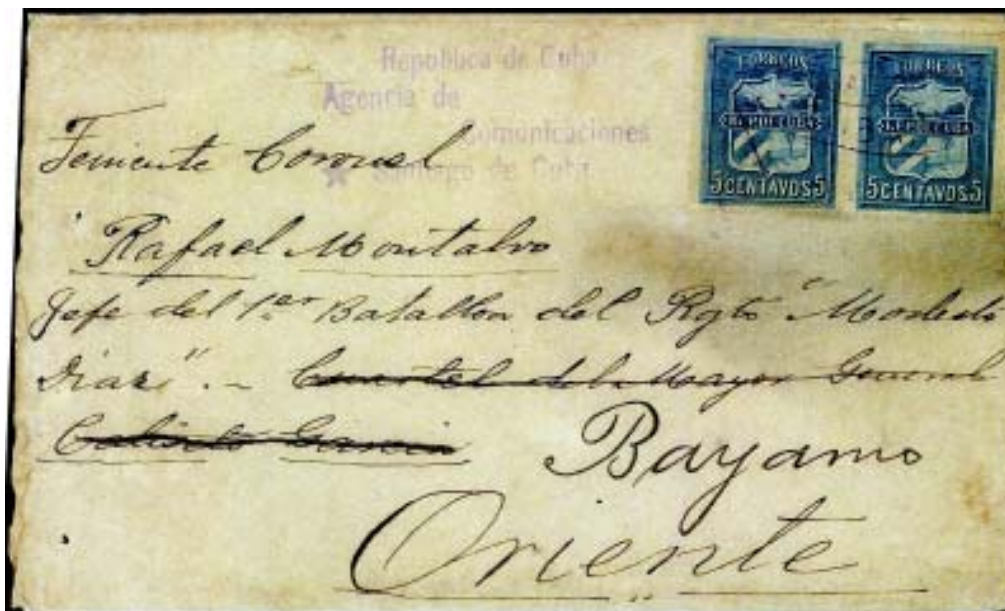 Republica de Cuba
Agencia de
Comunicaciones
Santiago de Cuba
CORREOS
REP. DE CUBA
5 CENTAVOS 5
CORREOS
REP. DE CUBA
5 CENTAVOS 5
Teniente Coronel
Rafael Montalvo
Jefe del 1er Batallon del Rgto "Modesto
Diaz". - Cuartel del Mayor General
Calixto Garcia
Bayamo
Oriente